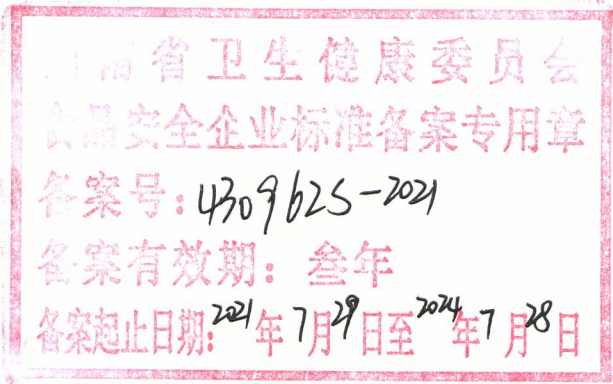 南省卫生健康委员会
食品安全企业标准备案专用章
备案号：430962S-2021
备案有效期：叁年
备案起止日期：2021年7月29日至2024年7月28日